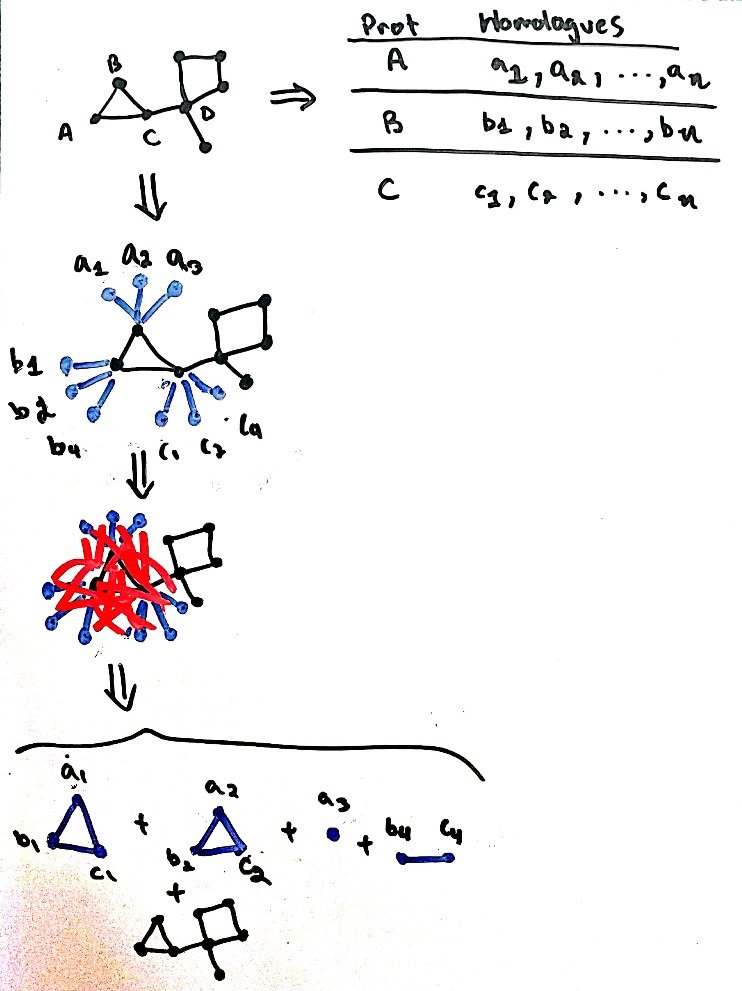 Prot Homologues
A a1, a2, ..., an
B b1, b2, ..., bn
C c1, c2, ..., cn
B
A
C
D
a1 a2 a3
b1
b2
b4
c1 c2 c4
a1
b1
c1
+
a2
b2
c2
+
a3
+
b4 c4
+